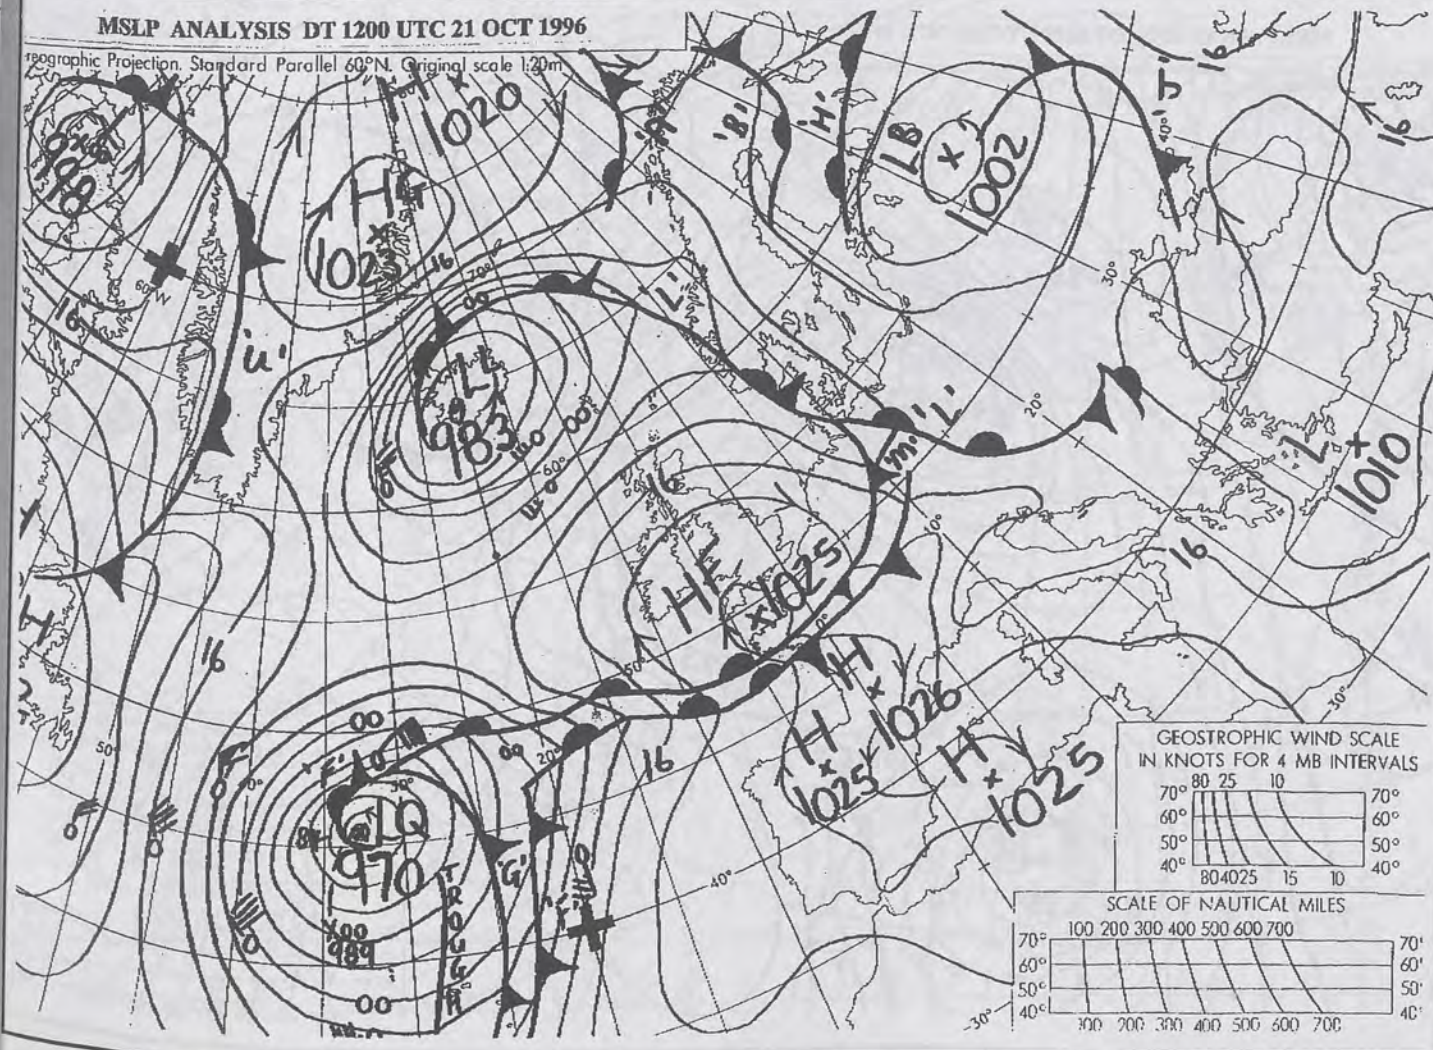 MSLP ANALYSIS DT 1200 UTC 21 OCT 1996
reographic Projection. Standard Parallel 60°N. Original scale 1:20m
H
1020
'B'
'H'
'J'
16
16
40°
LB
1002
HG
1023
16
70°
998
60°W
16
'U'
00
'L'
LL
983
00
60°
30°
20°
'L'
'M'
L
1010
16
10°
16
HF
1025
50°
16
50°
H
1026
H
1025
H
1025
16
00
'F'
00
20°
50°
LQ
970
'G'
TROUGH
989
00
40°
30°
30°
GEOSTROPHIC WIND SCALE
IN KNOTS FOR 4 MB INTERVALS
80 25 10
70° 70°
60° 60°
50° 50°
40° 40°
80 40 25 15 10
SCALE OF NAUTICAL MILES
100 200 300 400 500 600 700
70° 70°
60° 60°
50° 50°
40° 40°
100 200 300 400 500 600 700